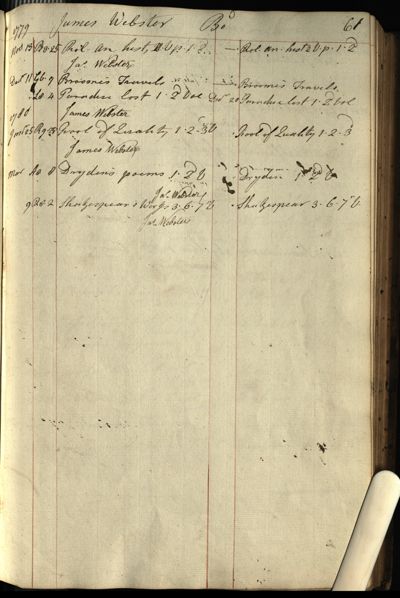 1779 James Webster Bo 61
Nov 13 Bo 25 Rol. an. hist. V p. 1. 2. — Rol. an. hist 2 V p. 1. 2
Jas. Webster
Dect 11 9 Broome's Travels — Broome's Travels
4 Paradise lost 1. 2d vol Dec 20 Paradise lost 1. 2 vol
1780 James Webster
25 Fool of Quality 1. 2. 3 V Fool of Quality 1. 2. 3
James Webster
Mar 8 Dryden's poems 1. 2d V Dryden 1. 2d V
Jas. Webster
9 2 Shakespear's Works 3. 6. 7 V Shakespear 3. 6. 7 V.
Jas. Webster